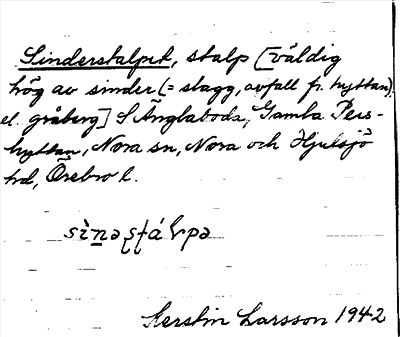 Sinderstalpen, stalp [väldig
hög av sinder (= slagg, avfall fr. hyttan)
el. gråberg] S Änglaboda, Gamla Pers-
hyttan, Nora sn, Nora och Hjulsjö
hd, Örebro l.
Kerstin Larsson 1942